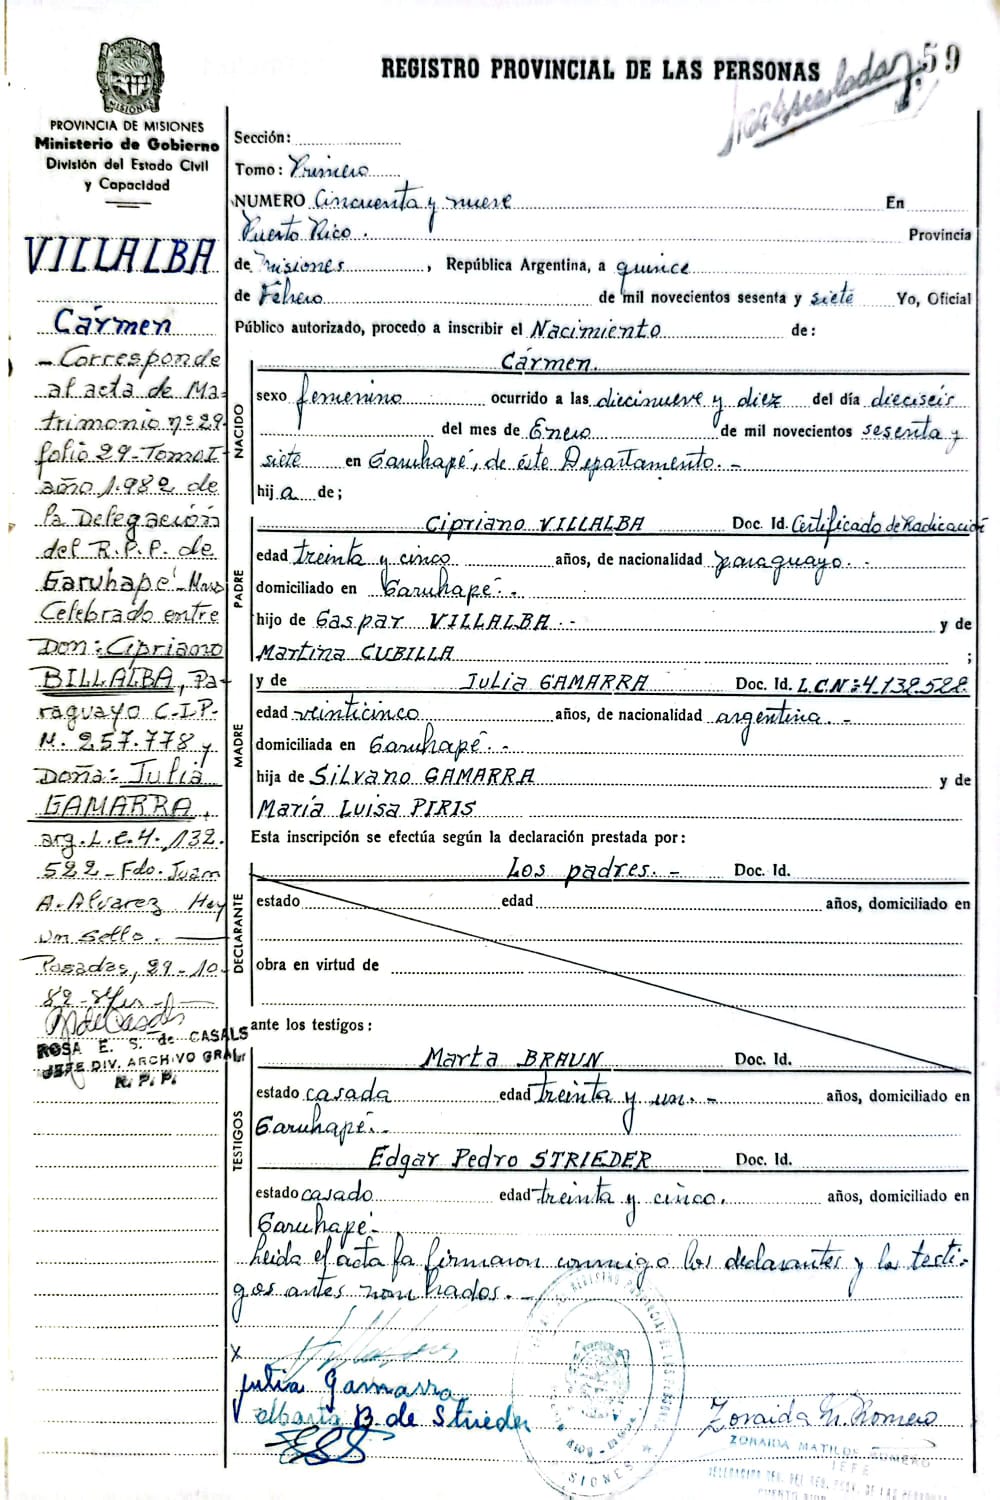 REGISTRO PROVINCIAL DE LAS PERSONAS
59
PROVINCIA DE MISIONES
Ministerio de Gobierno
División del Estado Civil
y Capacidad
VILLALBA
Cármen
- Corresponde
al acta de Ma-
trimonio nº 29-
folio 29-Tomo I
año 1.982 de
la Delegación
del R.P.P. de
Garuhapé-Mns
Celebrado entre
Don: Cipriano
BILLALBA, Pa-
raguayo C.I.P.
N. 257.778 y
Doña: Julia
GAMARRA,
arg. L.C. 4.132.
522 - Fdo. Juan
A. Alvarez Hay
un sello.
Posadas, 29-10-
82-
ROSA E. S. de CASALS
JEFE DIV. ARCHIVO GRAL
R. P. P.
Sección:
Tomo: Primero
NUMERO Cincuenta y nueve En
Puerto Rico. Provincia
de Misiones, República Argentina, a quince
de Febrero de mil novecientos sesenta y siete Yo, Oficial
Público autorizado, procedo a inscribir el Nacimiento de:
NACIDO
Cármen.
sexo femenino ocurrido a las diecinueve y diez del día dieciseis
del mes de Enero de mil novecientos sesenta y
siete en Garuhapé, de éste Departamento. -
hija de;
PADRE
Cipriano VILLALBA Doc. Id. Certificado de Radicación
edad treinta y cinco años, de nacionalidad paraguayo. -
domiciliado en Garuhapé. -
hijo de Gaspar VILLALBA. - y de
Martina CUBILLA ;
MADRE
y de Julia GAMARRA Doc. Id. L.C.Nº:4.132.522.
edad veinticinco años, de nacionalidad argentina. -
domiciliada en Garuhapé. -
hija de Silvano GAMARRA y de
María Luisa PIRIS
Esta inscripción se efectúa según la declaración prestada por:
DECLARANTE
Los padres. - Doc. Id.
estado edad años, domiciliado en
obra en virtud de
ante los testigos:
TESTIGOS
Marta BRAUN Doc. Id.
estado casada edad treinta y un. - años, domiciliado en
Garuhapé. -
Edgar Pedro STRIEDER Doc. Id.
estado casado edad treinta y cinco. años, domiciliado en
Garuhapé -
Leida el acta la firmaron conmigo los declarantes y los testi-
gos antes nombrados. -
X
Julia Gamarra
B de Strieder
Zoraida M. Romero
ZORAIDA MATILDE ROMERO
JEFE
PUERTO RICO
MISIONES